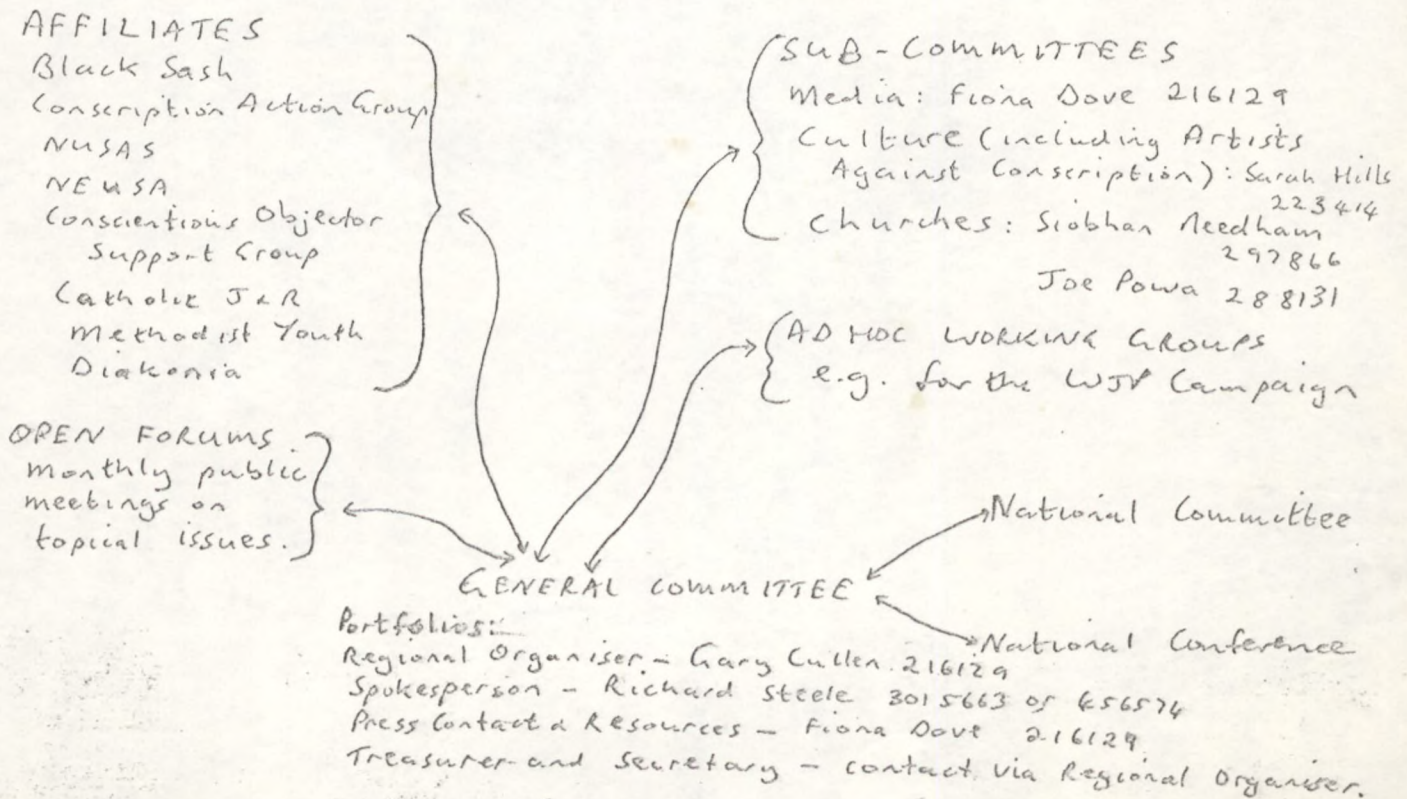 AFFILIATES
Black Sash
Conscription Action Group
NUSAS
NEUSA
Conscientious Objector
Support Group
Catholic J & R
Methodist Youth
Diakonia
OPEN FORUMS
monthly public
meetings on
topical issues.
SUB-COMMITTEES
Media: Fiona Dove 216129
Culture (including Artists
Against Conscription): Sarah Hills
223414
Churches: Siobhan Needham
297866
Joe Powa 288131
AD HOC WORKING GROUPS
e.g. for the WJP Campaign
National Committee
GENERAL COMMITTEE
National Conference
Portfolios:
Regional Organiser - Gary Cullen 216129
Spokesperson - Richard Steele 3015663 or 656574
Press Contact & Resources - Fiona Dove 216129
Treasurer and Secretary - contact via Regional Organiser.